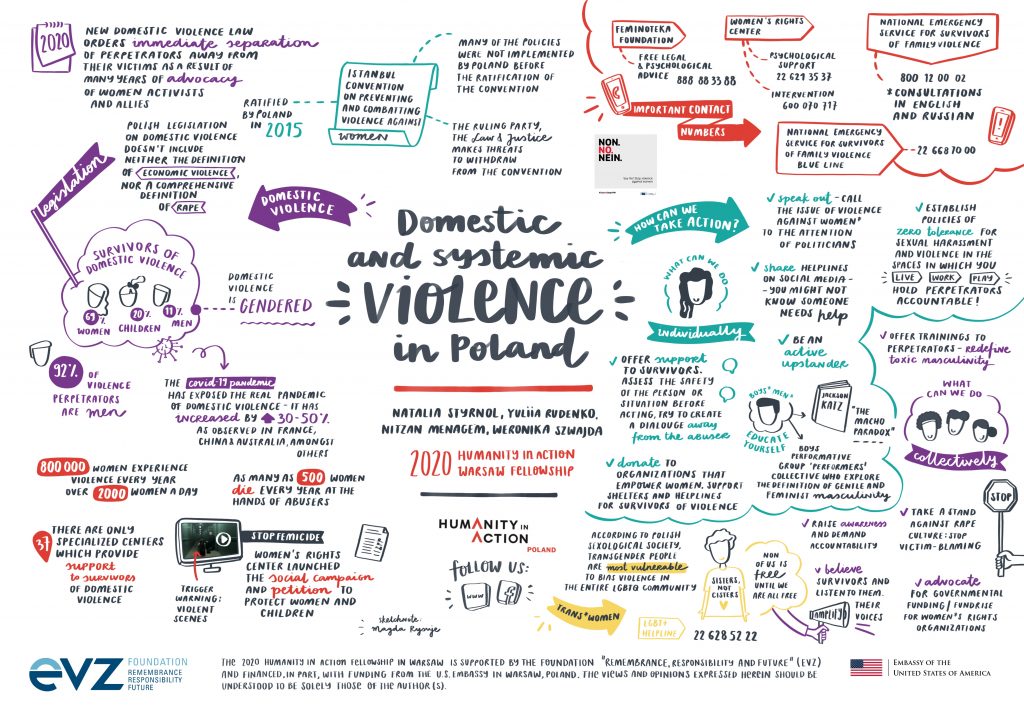 2020
NEW DOMESTIC VIOLENCE LAW
ORDERS immediate separation
OF PERPETRATORS AWAY FROM
THEIR VICTIMS AS A RESULT OF
MANY YEARS OF advocacy
OF WOMEN ACTIVISTS
AND ALLIES
RATIFIED
BY POLAND
IN 2015
ISTANBUL
CONVENTION
ON PREVENTING
AND COMBATTING
VIOLENCE AGAINST
women
MANY OF THE POLICIES
WERE NOT IMPLEMENTED
BY POLAND BEFORE
THE RATIFICATION OF
THE CONVENTION
THE RULING PARTY,
THE Law & Justice
MAKES THREATS
TO WITHDRAW
FROM THE CONVENTION
FEMINOTEKA
FOUNDATION
FREE LEGAL
& PSYCHOLOGICAL
ADVICE
888 88 33 88
WOMEN'S RIGHTS
CENTER
PSYCHOLOGICAL
SUPPORT
22 621 35 37
INTERVENTION
600 070 717
NATIONAL EMERGENCY
SERVICE FOR SURVIVORS
OF FAMILY VIOLENCE
800 12 00 02
*CONSULTATIONS
IN ENGLISH
AND RUSSIAN
IMPORTANT CONTACT
NUMBERS
NATIONAL EMERGENCY
SERVICE FOR SURVIVORS
OF FAMILY VIOLENCE
BLUE LINE
22 668 70 00
NON.
NO.
NEIN.
legislation
POLISH LEGISLATION
ON DOMESTIC VIOLENCE
DOESN'T INCLUDE
NEITHER THE DEFINITION
OF ECONOMIC VIOLENCE,
NOR A COMPREHENSIVE
DEFINITION
OF RAPE
DOMESTIC
VIOLENCE
SURVIVORS OF
DOMESTIC VIOLENCE
69%
WOMEN
20%
CHILDREN
11%
MEN
DOMESTIC
VIOLENCE
IS GENDERED
92% OF
VIOLENCE
PERPETRATORS
ARE men
THE covid-19 pandemic
HAS EXPOSED THE REAL PANDEMIC
OF DOMESTIC VIOLENCE - IT HAS
increased BY 30-50%
AS OBSERVED IN FRANCE,
CHINA & AUSTRALIA, AMONGST
OTHERS
800 000 WOMEN EXPERIENCE
VIOLENCE EVERY YEAR
OVER 2000 WOMEN A DAY
AS MANY AS 500 WOMEN
die EVERY YEAR AT THE
HANDS OF ABUSERS
37
THERE ARE ONLY
SPECIALIZED CENTERS
WHICH PROVIDE
support
to survivors
OF DOMESTIC
VIOLENCE
TRIGGER
WARNING:
VIOLENT
SCENES
STOP FEMICIDE
WOMEN'S RIGHTS
CENTER LAUNCHED
THE social campaign
AND petition TO
PROTECT WOMEN AND
CHILDREN
Domestic
and systemic
VIOLENCE
in Poland
NATALIA STYRNOL, YULIIA RUDENKO,
NITZAN MENAGEM, WERONIKA SZWAJDA
2020 HUMANITY IN ACTION
WARSAW FELLOWSHIP
HUMANITY IN
ACTION
POLAND
FOLLOW US:
WWW
f
sketchnote:
HOW CAN WE
TAKE ACTION?
WHAT CAN WE DO
individually
speak out - CALL
THE ISSUE OF VIOLENCE
AGAINST WOMEN*
TO THE ATTENTION
OF POLITICIANS
share HELPLINES
ON SOCIAL MEDIA -
- YOU MIGHT NOT
KNOW SOMEONE
NEEDS help
BE AN
active
upstander
OFFER support
TO SURVIVORS.
ASSESS THE SAFETY
OF THE PERSON OR
SITUATION BEFORE
ACTING, TRY TO CREATE
A DIALOUGE away
from the abuser
donate TO
ORGANIZATIONS THAT
EMPOWER WOMEN, SUPPORT
SHELTERS AND HELPLINES
FOR SURVIVORS OF VIOLENCE
BOYS* MEN*
EDUCATE
YOURSELF
JACKSON
KATZ
"THE
MACHO
PARADOX"
BOYS
PERFORMATIVE
GROUP 'PERFORMERS'
COLLECTIVE WHO EXPLORE
THE DEFINITION OF GENTLE AND
FEMINIST masculinity
ESTABLISH
POLICIES OF
zero tolerance FOR
SEXUAL HARASSMENT
AND VIOLENCE IN THE
SPACES IN WHICH YOU
LIVE WORK PLAY
HOLD PERPETRATORS
ACCOUNTABLE!
OFFER TRAININGS TO
PERPETRATORS - redefine
toxic masculinity
WHAT
CAN WE DO
collectively
STOP
RAISE awareness
AND DEMAND
ACCOUNTABILITY
believe
SURVIVORS AND
LISTEN TO THEM.
AMPLIFY THEIR
VOICES
TAKE A STAND
AGAINST RAPE
CULTURE: STOP
VICTIM-BLAMING
advocate
FOR GOVERNMENTAL
FUNDING / FUNDRISE
FOR WOMEN'S RIGHTS
ORGANIZATIONS
ACCORDING TO POLISH
SEXOLOGICAL SOCIETY,
TRANSGENDER PEOPLE
ARE most vulnerable
TO BIAS VIOLENCE IN
THE ENTIRE LGBTQ COMMUNITY
TRANS* WOMEN
LGBT+
HELPLINE
22 628 52 22
SISTERS,
NOT
CISTERS
NON
OF US IS
free
UNTIL WE
ARE ALL FREE
EVZ
FOUNDATION
REMEMBRANCE
RESPONSIBILITY
FUTURE
THE 2020 HUMANITY IN ACTION FELLOWSHIP IN WARSAW IS SUPPORTED BY THE FOUNDATION "REMEMBRANCE, RESPONSIBILITY AND FUTURE" (EVZ)
AND FINANCED, IN PART, WITH FUNDING FROM THE U.S. EMBASSY IN WARSAW, POLAND. THE VIEWS AND OPINIONS EXPRESSED HEREIN SHOULD BE
UNDERSTOOD TO BE SOLELY THOSE OF THE AUTHOR(S).
EMBASSY OF THE
UNITED STATES OF AMERICA